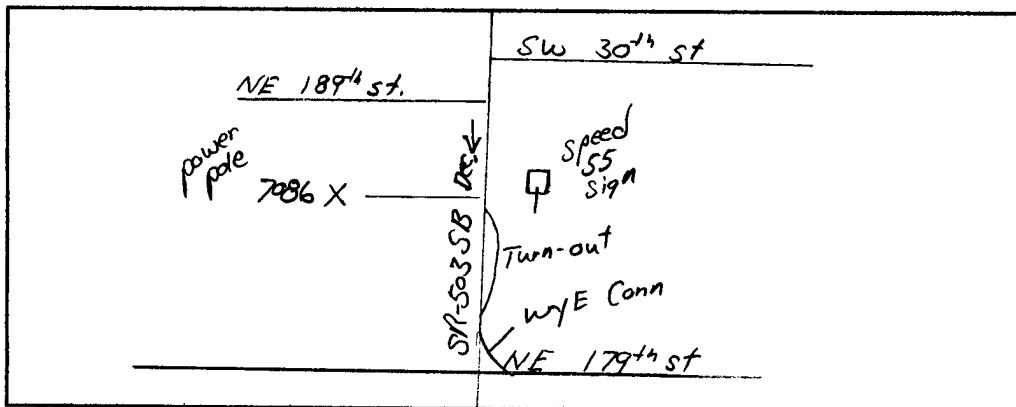 SW 30th st
NE 189th st.
power
pole
7086 X
Dec
Speed
55
sign
SR-503 SB
Turn-out
wyE Conn
NE 179th st